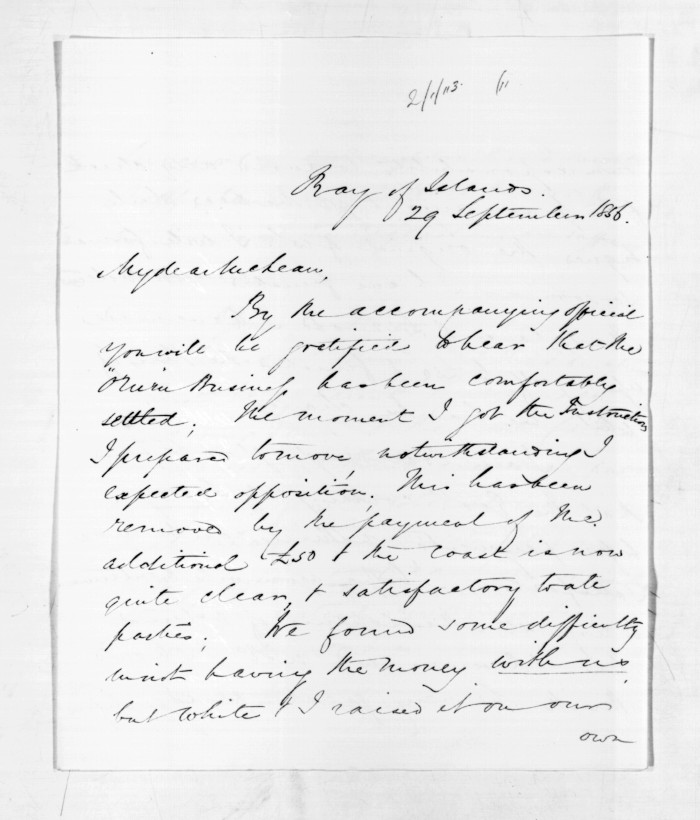 Bay of Islands.
29 September 1856.
My dear McLean,
By the accompanying official
you will be gratified to hear that the
"Oruru Business has been comfortably
settled; The moment I got the Instructions
I prepared to move, notwithstanding I
expected opposition. This has been
removed by the payment of the
additional £50 & the coast is now
quite clear, & satisfactory to all
parties; We found some difficulty
in not having the money with us
but White & I raised it on our
own